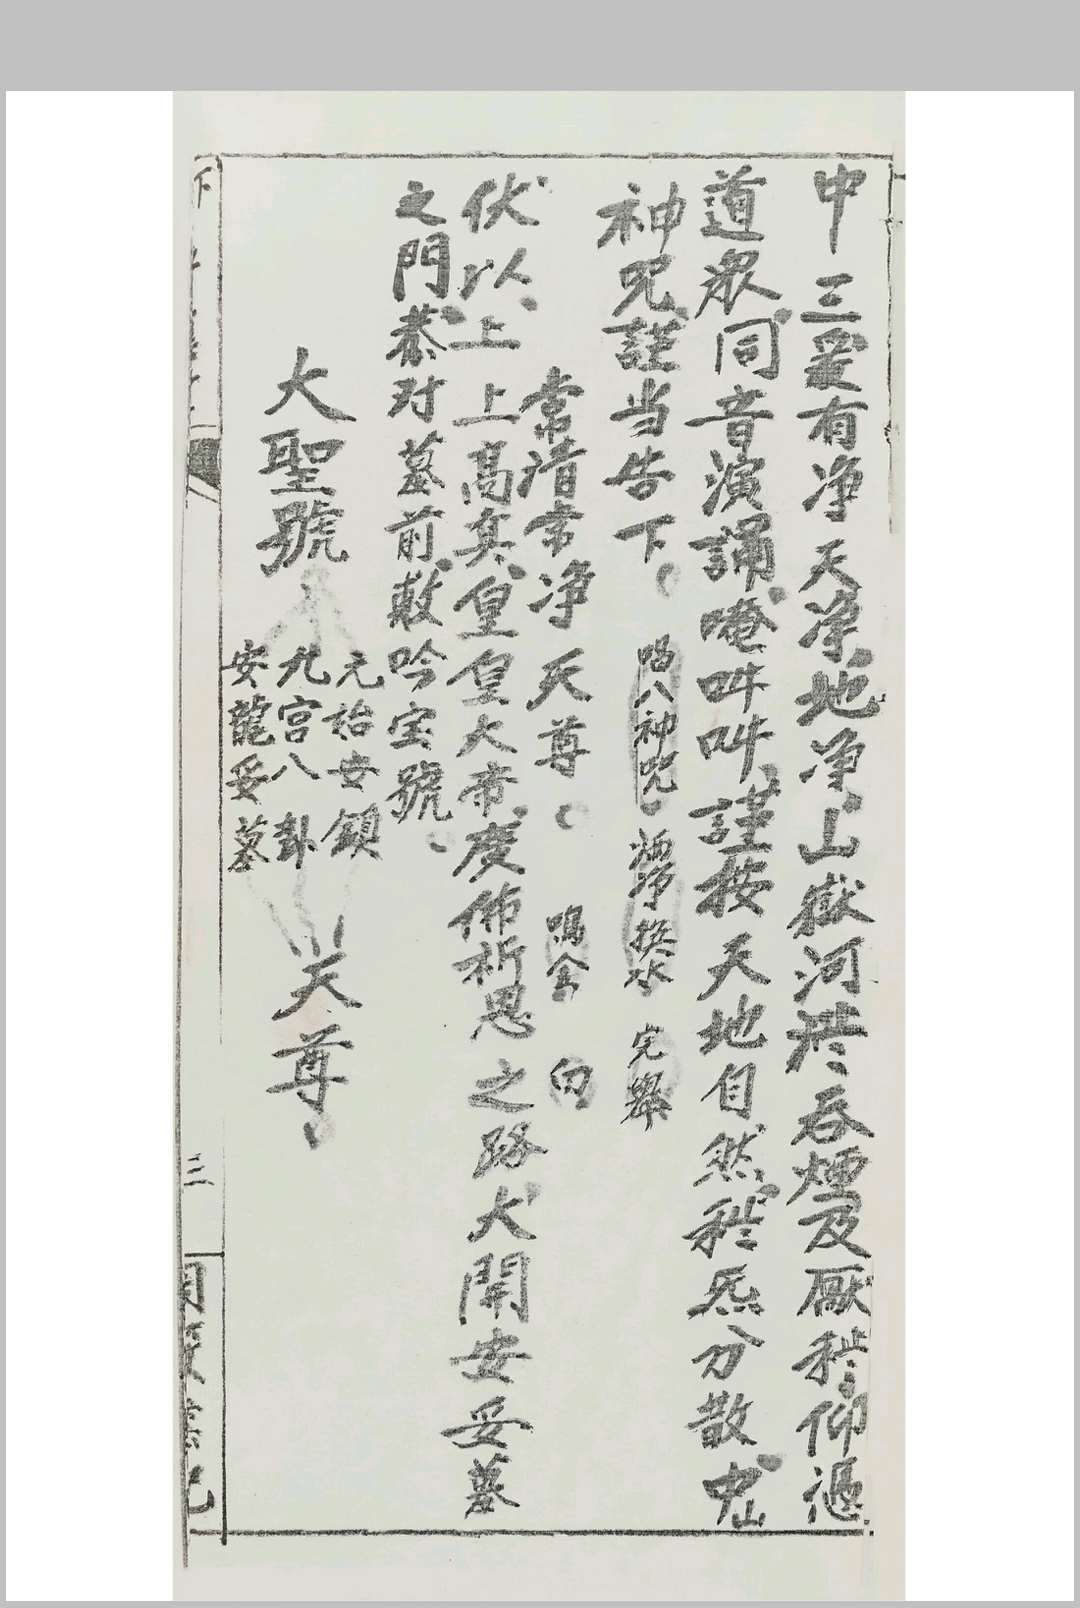 中三界有净天净地净山嶽河秽吞煙及厭秽仰過
道众同音演誦唵吽吽謹按天地自然秽炁分散
神咒謹当告下
唱八神咒 洒净换水 完舉
常清常净天尊 鳴金 白
伏以上上高真皇皇大帝慶佈祈恩之路大開安妥墓
之門恭对墓前敢吟宝號
大聖號
元始安鎮
九宫八卦
安龍妥墓
天尊
三